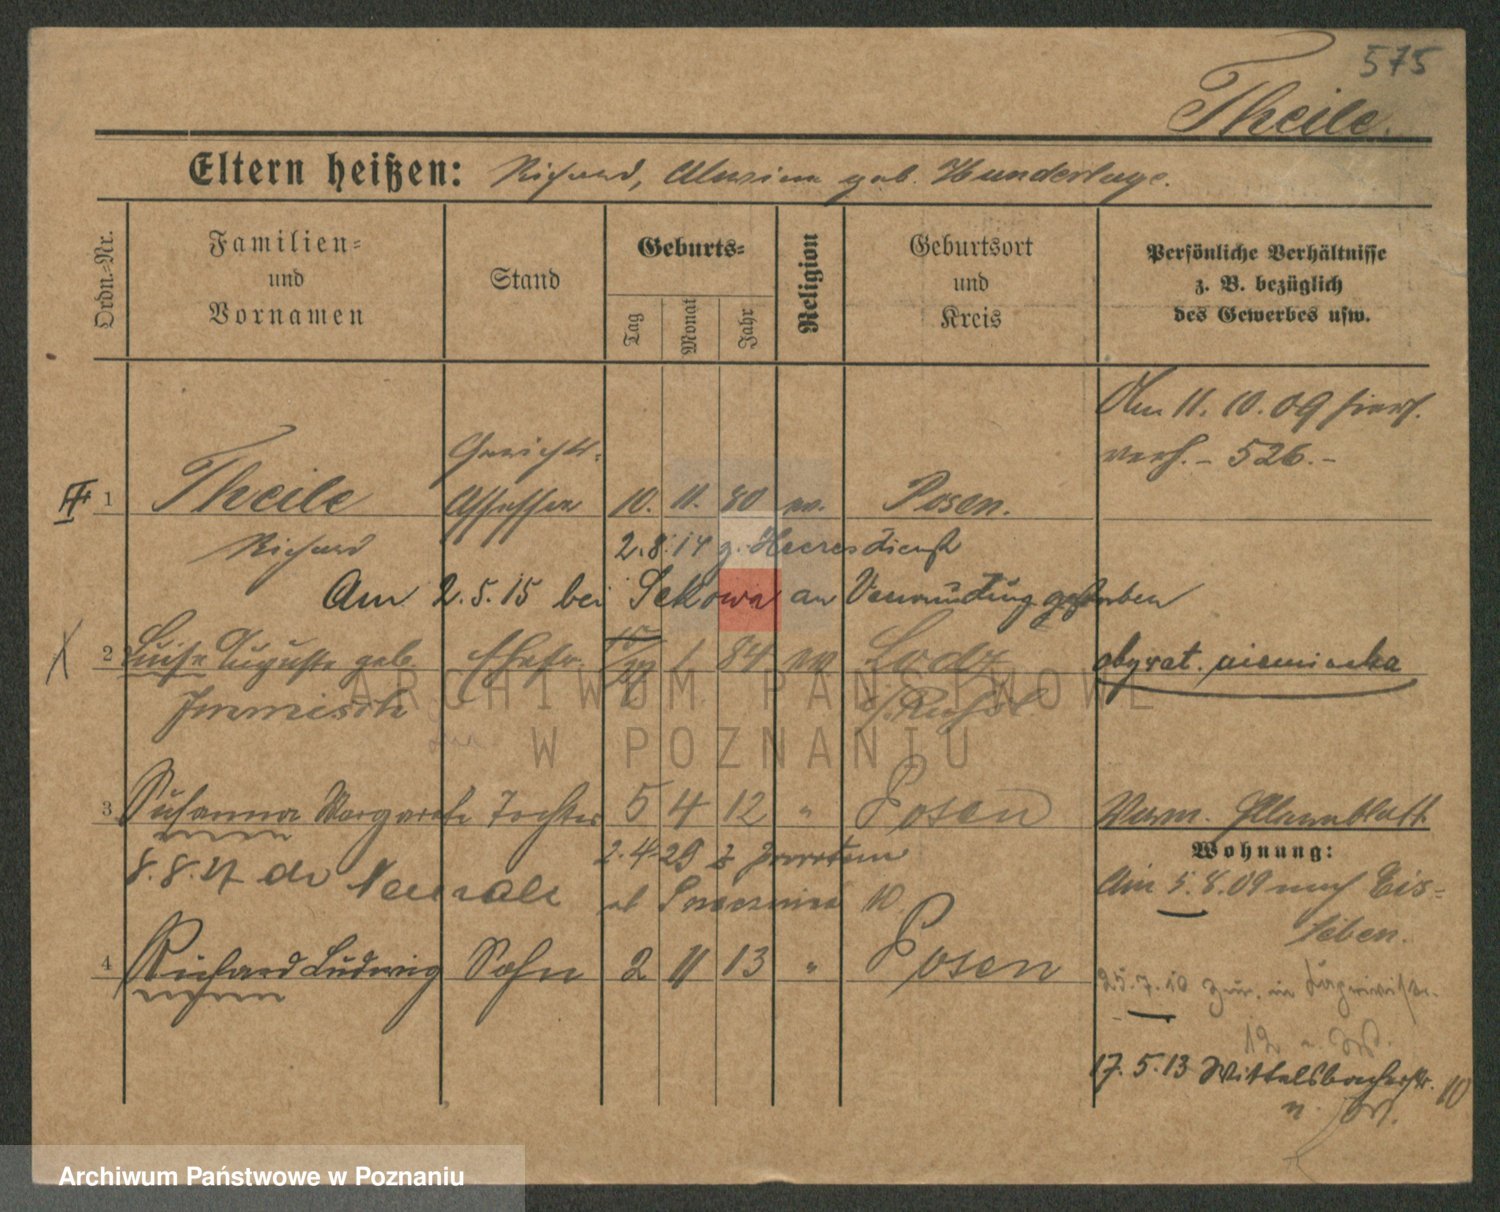 575
Theile.
Eltern heißen: Richard, Alwine geb. Hundertage.
Ordn.=Nr.
Familien=
und
Vornamen
Stand
Geburts=
Tag
Monat
Jahr
Religion
Geburtsort
und
Kreis
Persönliche Verhältnisse
z. B. bezüglich
des Gewerbes usw.
11. 10. 09
verh. - 526. -
Gerichts-
1 Theile Assessor 10. 11. 80 ev. Posen.
Richard 2. 8. 14 z. Heeresdienst
Am 2. 5. 15 bei Sekowa an Verwundung gestorben
2 Luise Auguste geb. Ehefr. 1 84 ev Lodz obywat. niemiecka
Immisch
3 Susanna Margarete Tochter 5 4 12 " Posen
Wohnung:
8. 8. 21 do
2. 4. 29 z
10
Am 5. 8. 09 nach Eis=
leben.
4 Richard Ludwig Sohn 2 11 13 " Posen
25. 7. 10 zur. in
12
17. 5. 13 Wittelsbacherstr. 10
ARCHIWUM PAŃSTWOWE
W POZNANIU
Archiwum Państwowe w Poznaniu